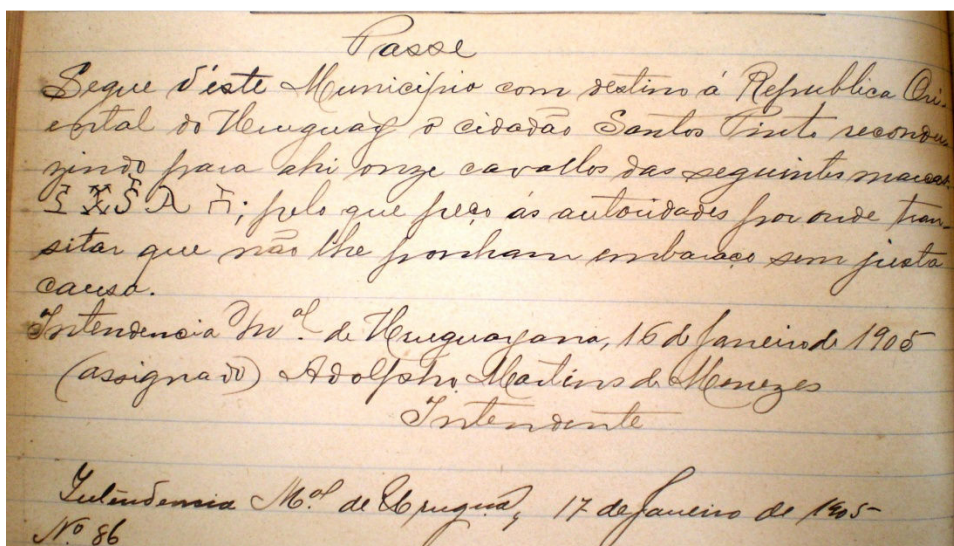 Passe
Segue d'este Municipio com destino á Republica Ori-
ental do Uruguay o cidadão Santos Pinto recondu-
zindo para ahi onze cavallos das seguintes marcas
; pelo que peço ás autoridades por onde tran-
sitar que não lhe ponham embaraço sem justa
causa.
Intendencia M.al de Uruguayana, 16 de Janeiro de 1905
(assignado) Adolpho Martins de Menezes
Intendente
Intendencia M.al de Urugua, 17 de Janeiro de 1905
Nº 86